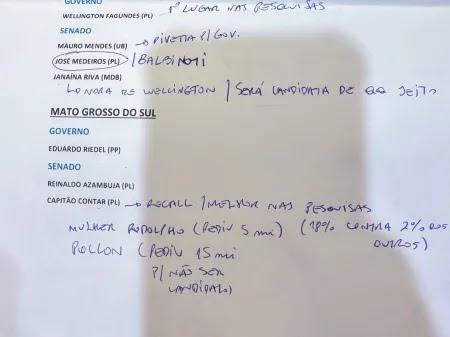 GOVERNO
WELLINGTON FAGUNDES (PL) 1º LUGAR NAS PESQUISAS
SENADO
MAURO MENDES (UB) → PIVETTA P/ GOV.
JOSÉ MEDEIROS (PL) / BALBINOTI
JANAÍNA RIVA (MDB)
↳ NORA DE WELLINGTON / SERÁ CANDIDATA DE QQ JEITO
MATO GROSSO DO SUL
GOVERNO
EDUARDO RIEDEL (PP)
SENADO
REINALDO AZAMBUJA (PL)
CAPITÃO CONTAR (PL) → RECALL / MELHOR NAS PESQUISAS
MULHER RODOLPHO (PEDIU 5 mi) (18% CONTRA 2% DOS OUTROS)
POLLON (PEDIU 15 mi
P/ NÃO SER
CANDIDATO)